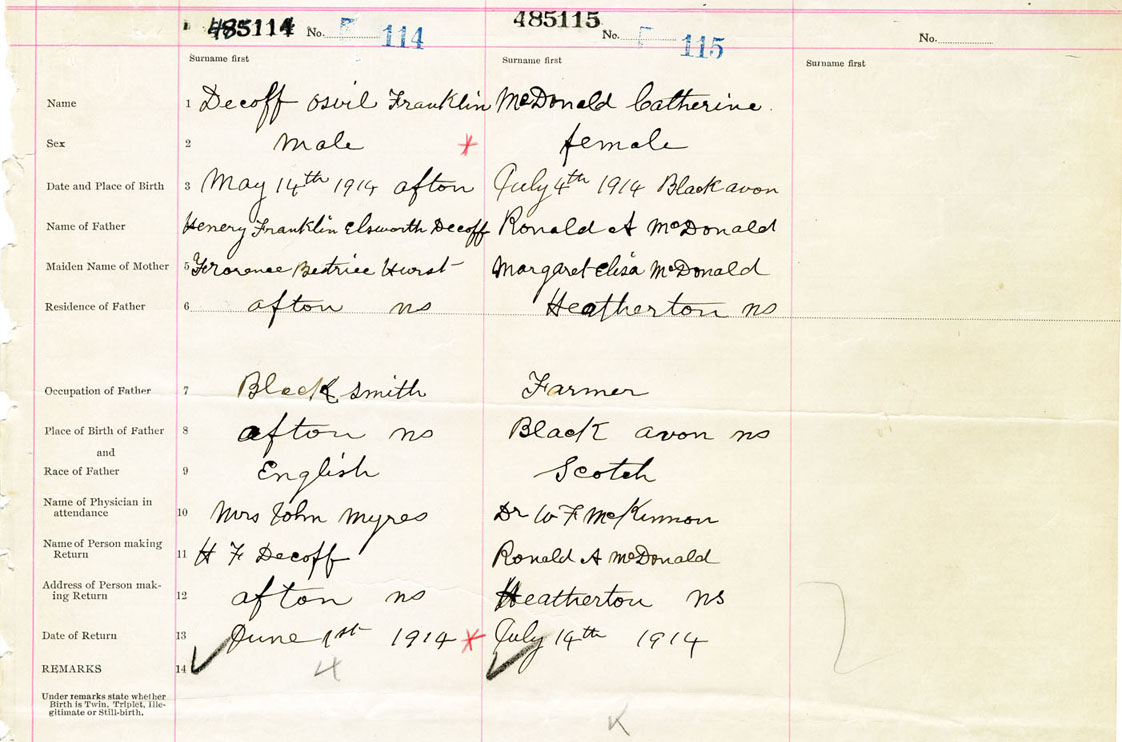 485114 No. F 114 485115 No. F 115 No.
Surname first Surname first Surname first
Name 1 Decoff Osvil Franklin McDonald Catherine.
Sex 2 male female
Date and Place of Birth 3 May 14th 1914 afton July 4th 1914 Black avon
Name of Father Henery Franklin Elsworth Decoff Ronald A McDonald
Maiden Name of Mother 5 Flrorence Bestrice Hurst Margaret Elisa McDonald
Residence of Father 6 afton ns Heatherton ns
Occupation of Father 7 Black smith Farmer
Place of Birth of Father 8 afton ns Black avon ns
and
Race of Father 9 English Scotch
Name of Physician in
attendance 10 Mrs John Myres Dr W F McKinnon
Name of Person making
Return 11 H F Decoff Ronald A McDonald
Address of Person mak-
ing Return 12 afton ns Heatherton ns
Date of Return 13 June 1st 1914 July 14th 1914
REMARKS 14
Under remarks state whether
Birth is Twin, Triplet, Ille-
gitimate or Still-birth.
K